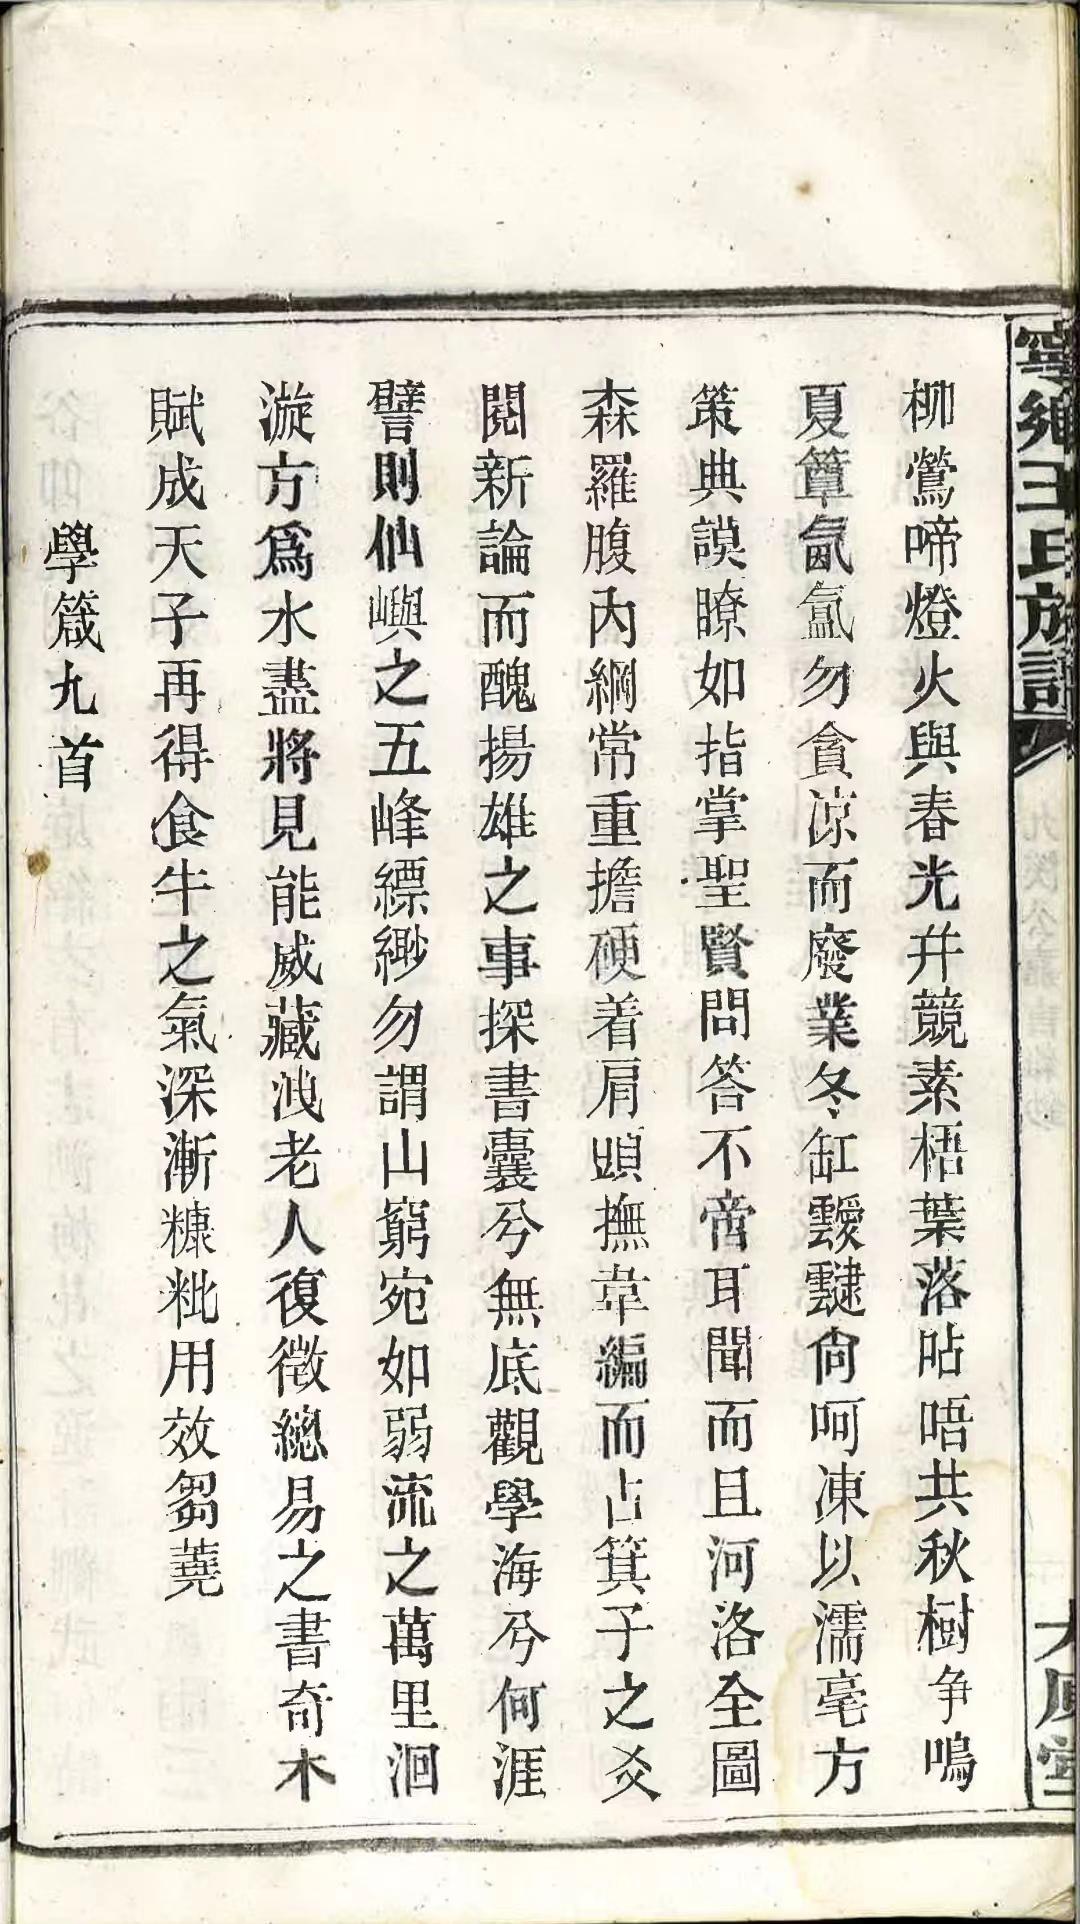 寧鄉王氏族譜
大原堂
柳鶯啼燈火與春光并競素梧葉落呫唔共秋樹争鳴
夏簟氤氳勿貪涼而廢業冬缸靉靆尙呵凍以濡毫方
策典謨瞭如指掌聖賢問答不啻耳聞而且河洛全圖
森羅腹內綱常重擔硬着肩頭撫韋編而占箕子之爻
閱新論而醜揚雄之事探書囊兮無底觀學海兮何涯
譬則仙嶼之五峰縹緲勿謂山窮宛如弱流之萬里洄
漩方爲水盡將見能威藏洩老人復徵總易之書奇木
賦成天子再得食牛之氣深漸糠粃用效芻蕘
學箴九首